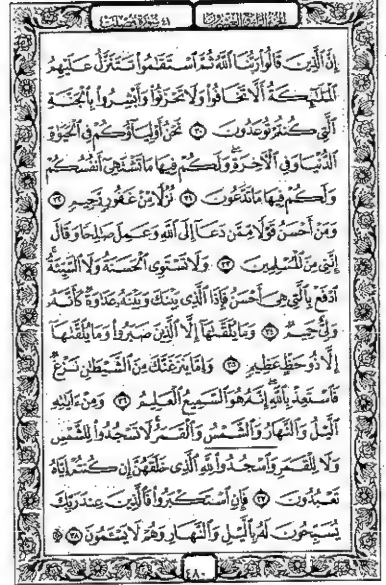 الجزء الرابع والعشرون ٤١ سورة فصلت
إِنَّ ٱلَّذِينَ قَالُوا۟ رَبُّنَا ٱللَّهُ ثُمَّ ٱسْتَقَٰمُوا۟ تَتَنَزَّلُ عَلَيْهِمُ
ٱلْمَلَٰٓئِكَةُ أَلَّا تَخَافُوا۟ وَلَا تَحْزَنُوا۟ وَأَبْشِرُوا۟ بِٱلْجَنَّةِ
ٱلَّتِى كُنتُمْ تُوعَدُونَ ٣٠ نَحْنُ أَوْلِيَآؤُكُمْ فِى ٱلْحَيَوٰةِ
ٱلدُّنْيَا وَفِى ٱلْءَاخِرَةِ ۖ وَلَكُمْ فِيهَا مَا تَشْتَهِىٓ أَنفُسُكُمْ
وَلَكُمْ فِيهَا مَا تَدَّعُونَ ٣١ نُزُلًا مِّنْ غَفُورٍ رَّحِيمٍ ٣٢
وَمَنْ أَحْسَنُ قَوْلًا مِّمَّن دَعَآ إِلَى ٱللَّهِ وَعَمِلَ صَٰلِحًا وَقَالَ
إِنَّنِى مِنَ ٱلْمُسْلِمِينَ ٣٣ وَلَا تَسْتَوِى ٱلْحَسَنَةُ وَلَا ٱلسَّيِّئَةُ ۚ
ٱدْفَعْ بِٱلَّتِى هِىَ أَحْسَنُ فَإِذَا ٱلَّذِى بَيْنَكَ وَبَيْنَهُۥ عَدَٰوَةٌ كَأَنَّهُۥ
وَلِىٌّ حَمِيمٌ ٣٤ وَمَا يُلَقَّىٰهَآ إِلَّا ٱلَّذِينَ صَبَرُوا۟ وَمَا يُلَقَّىٰهَآ
إِلَّا ذُو حَظٍّ عَظِيمٍ ٣٥ وَإِمَّا يَنزَغَنَّكَ مِنَ ٱلشَّيْطَٰنِ نَزْغٌ
فَٱسْتَعِذْ بِٱللَّهِ ۖ إِنَّهُۥ هُوَ ٱلسَّمِيعُ ٱلْعَلِيمُ ٣٦ وَمِنْ ءَايَٰتِهِ
ٱلَّيْلُ وَٱلنَّهَارُ وَٱلشَّمْسُ وَٱلْقَمَرُ ۚ لَا تَسْجُدُوا۟ لِلشَّمْسِ
وَلَا لِلْقَمَرِ وَٱسْجُدُوا۟ لِلَّهِ ٱلَّذِى خَلَقَهُنَّ إِن كُنتُمْ إِيَّاهُ
تَعْبُدُونَ ٣٧ فَإِنِ ٱسْتَكْبَرُوا۟ فَٱلَّذِينَ عِندَ رَبِّكَ
يُسَبِّحُونَ لَهُۥ بِٱلَّيْلِ وَٱلنَّهَارِ وَهُمْ لَا يَسْـَٔمُونَ ٣٨
٤٨٠